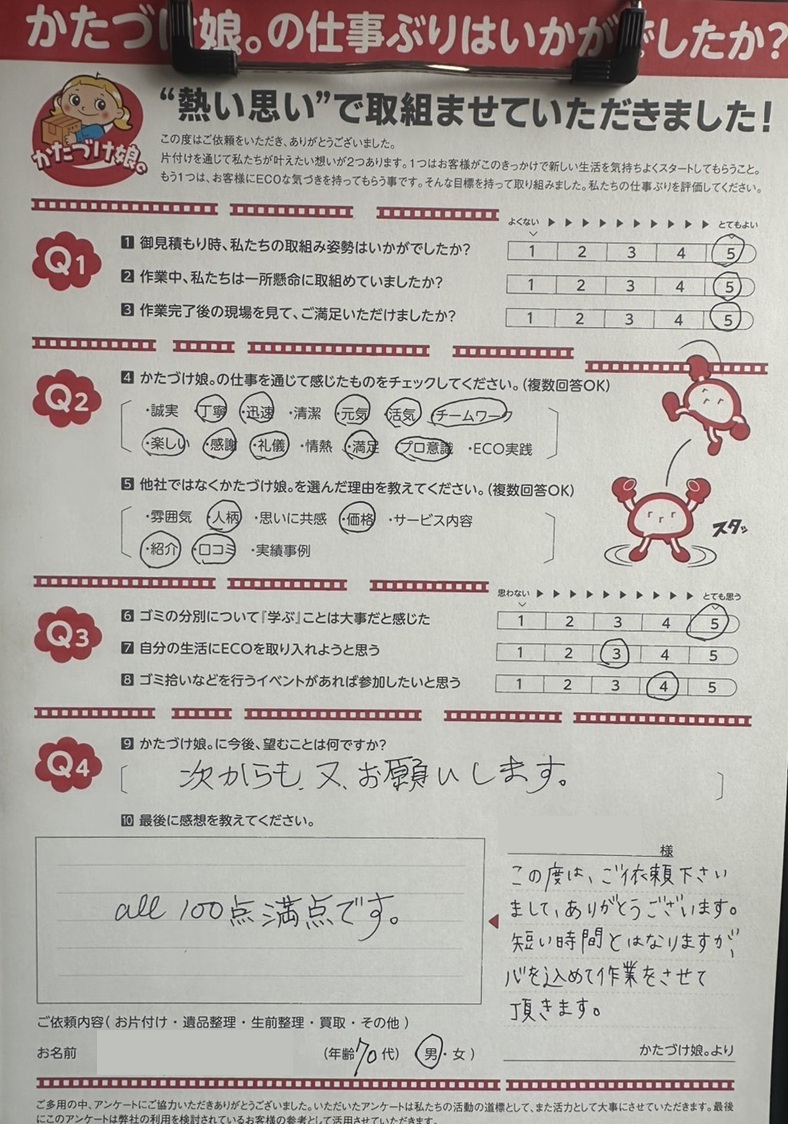 かたづけ娘。の仕事ぶりはいかがでしたか？
かたづけ娘。
“熱い思い”で取組ませていただきました！
この度はご依頼をいただき、ありがとうございました。
片付けを通じて私たちが叶えたい想いが2つあります。1つはお客様がこのきっかけで新しい生活を気持ちよくスタートしてもらうこと。
もう1つは、お客様にECOな気づきを持ってもらう事です。そんな目標を持って取り組みました。私たちの仕事ぶりを評価してください。
よくない ▶▶▶▶▶▶▶▶▶▶ とてもよい
Q1
1 御見積もり時、私たちの取組み姿勢はいかがでしたか？ 1 2 3 4 5
2 作業中、私たちは一所懸命に取組めていましたか？ 1 2 3 4 5
3 作業完了後の現場を見て、ご満足いただけましたか？ 1 2 3 4 5
Q2
4 かたづけ娘。の仕事を通じて感じたものをチェックしてください。（複数回答OK）
・誠実 ・丁寧 ・迅速 ・清潔 ・元気 ・活気 ・チームワーク
・楽しい ・感謝 ・礼儀 ・情熱 ・満足 ・プロ意識 ・ECO実践
5 他社ではなくかたづけ娘。を選んだ理由を教えてください。（複数回答OK）
・雰囲気 ・人柄 ・思いに共感 ・価格 ・サービス内容
・紹介 ・口コミ ・実績事例
スタッ
思わない ▶▶▶▶▶▶▶▶▶▶ とても思う
Q3
6 ゴミの分別について『学ぶ』ことは大事だと感じた 1 2 3 4 5
7 自分の生活にECOを取り入れようと思う 1 2 3 4 5
8 ゴミ拾いなどを行うイベントがあれば参加したいと思う 1 2 3 4 5
Q4
9 かたづけ娘。に今後、望むことは何ですか？
次からも、又、お願いします。
10 最後に感想を教えてください。
all 100点満点です。
様
この度は、ご依頼下さい
まして、ありがとうございます。
短い時間とはなりますが、
心を込めて作業をさせて
頂きます。
かたづけ娘。より
ご依頼内容（ お片付け・遺品整理・生前整理・買取・その他 ）
お名前 （年齢70代） （男・女）
ご多用の中、アンケートにご協力いただきありがとうございました。いただいたアンケートは私たちの活動の道標として、また活力として大事にさせていただきます。最後
にこのアンケートは弊社の利用を検討されているお客様の参考として活用させていただきます。